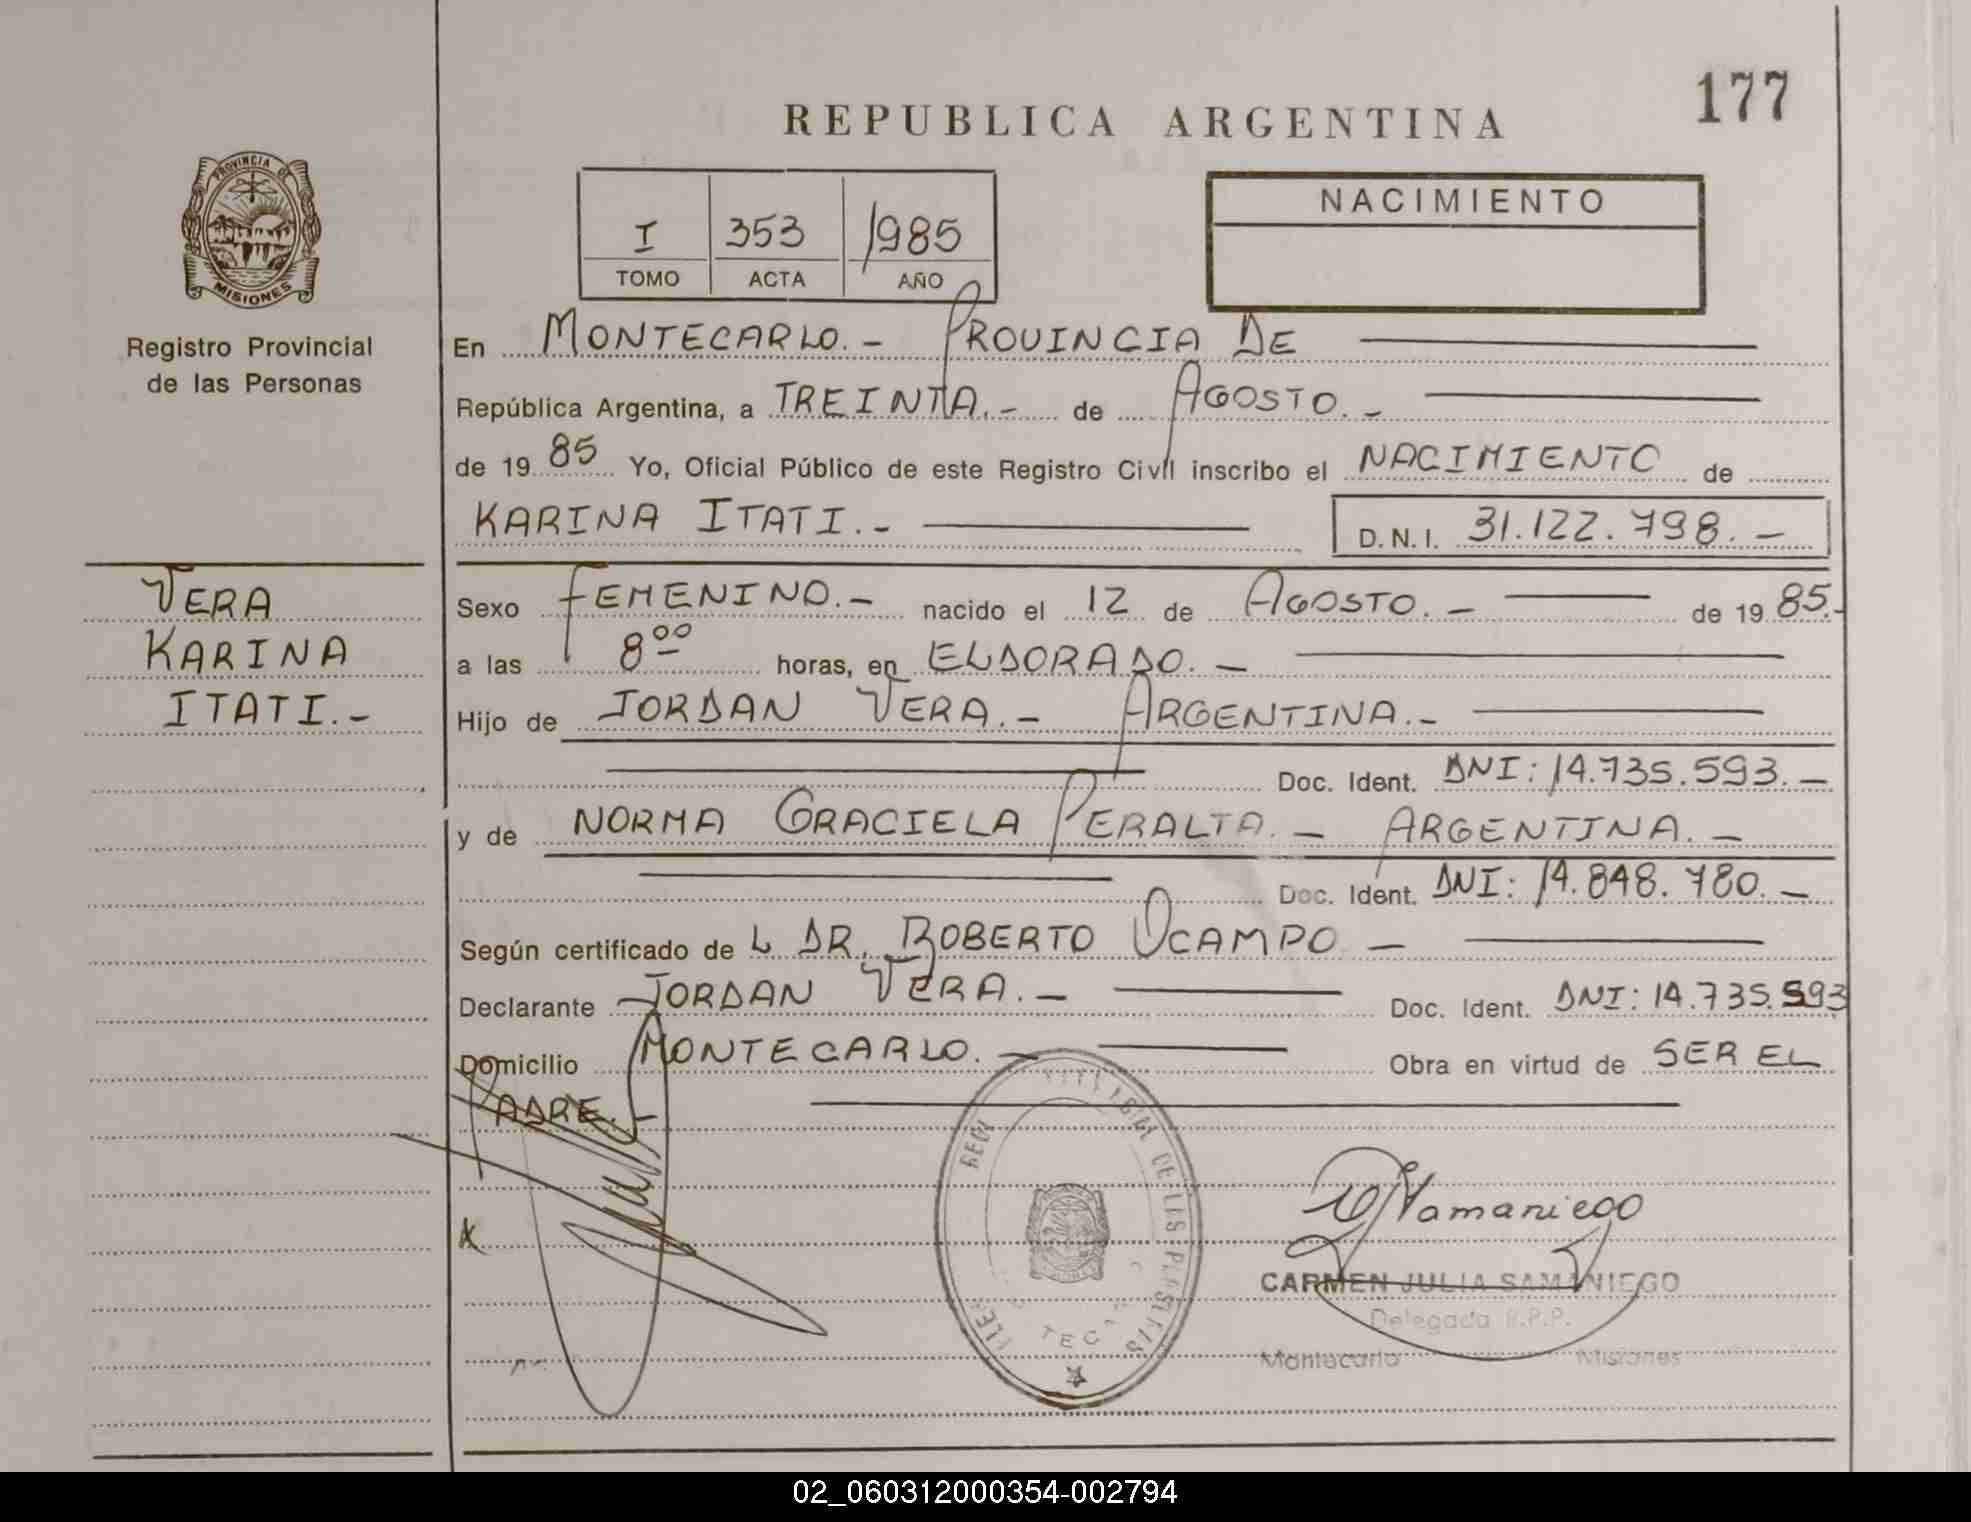 177
REPUBLICA ARGENTINA
PROVINCIA DE
MISIONES
Registro Provincial
de las Personas
I 353 1985
TOMO ACTA AÑO
NACIMIENTO
En MONTECARLO.- PROVINCIA DE
República Argentina, a TREINTA.- de AGOSTO.-
de 1985 Yo, Oficial Público de este Registro Civil inscribo el NACIMIENTO de
KARINA ITATI.- D.N.I. 31.122.798.-
VERA
KARINA
ITATI.-
Sexo FEMENINO.- nacido el 12 de AGOSTO.- de 1985.-
a las 8⁰⁰ horas, en ELDORADO.-
Hijo de JORDAN VERA.- ARGENTINA.-
Doc. Ident. DNI: 14.735.593.-
y de NORMA GRACIELA PERALTA.- ARGENTINA.-
Doc. Ident. DNI: 14.848.780.-
Según certificado de L DR. ROBERTO OCAMPO -
Declarante JORDAN VERA.- Doc. Ident. DNI: 14.735.593
Domicilio MONTECARLO.- Obra en virtud de SER EL
PADRE.-
x
Samaniego
CARMEN JULIA SAMANIEGO
Delegada R.P.P.
Montecarlo Misiones
02_060312000354-002794